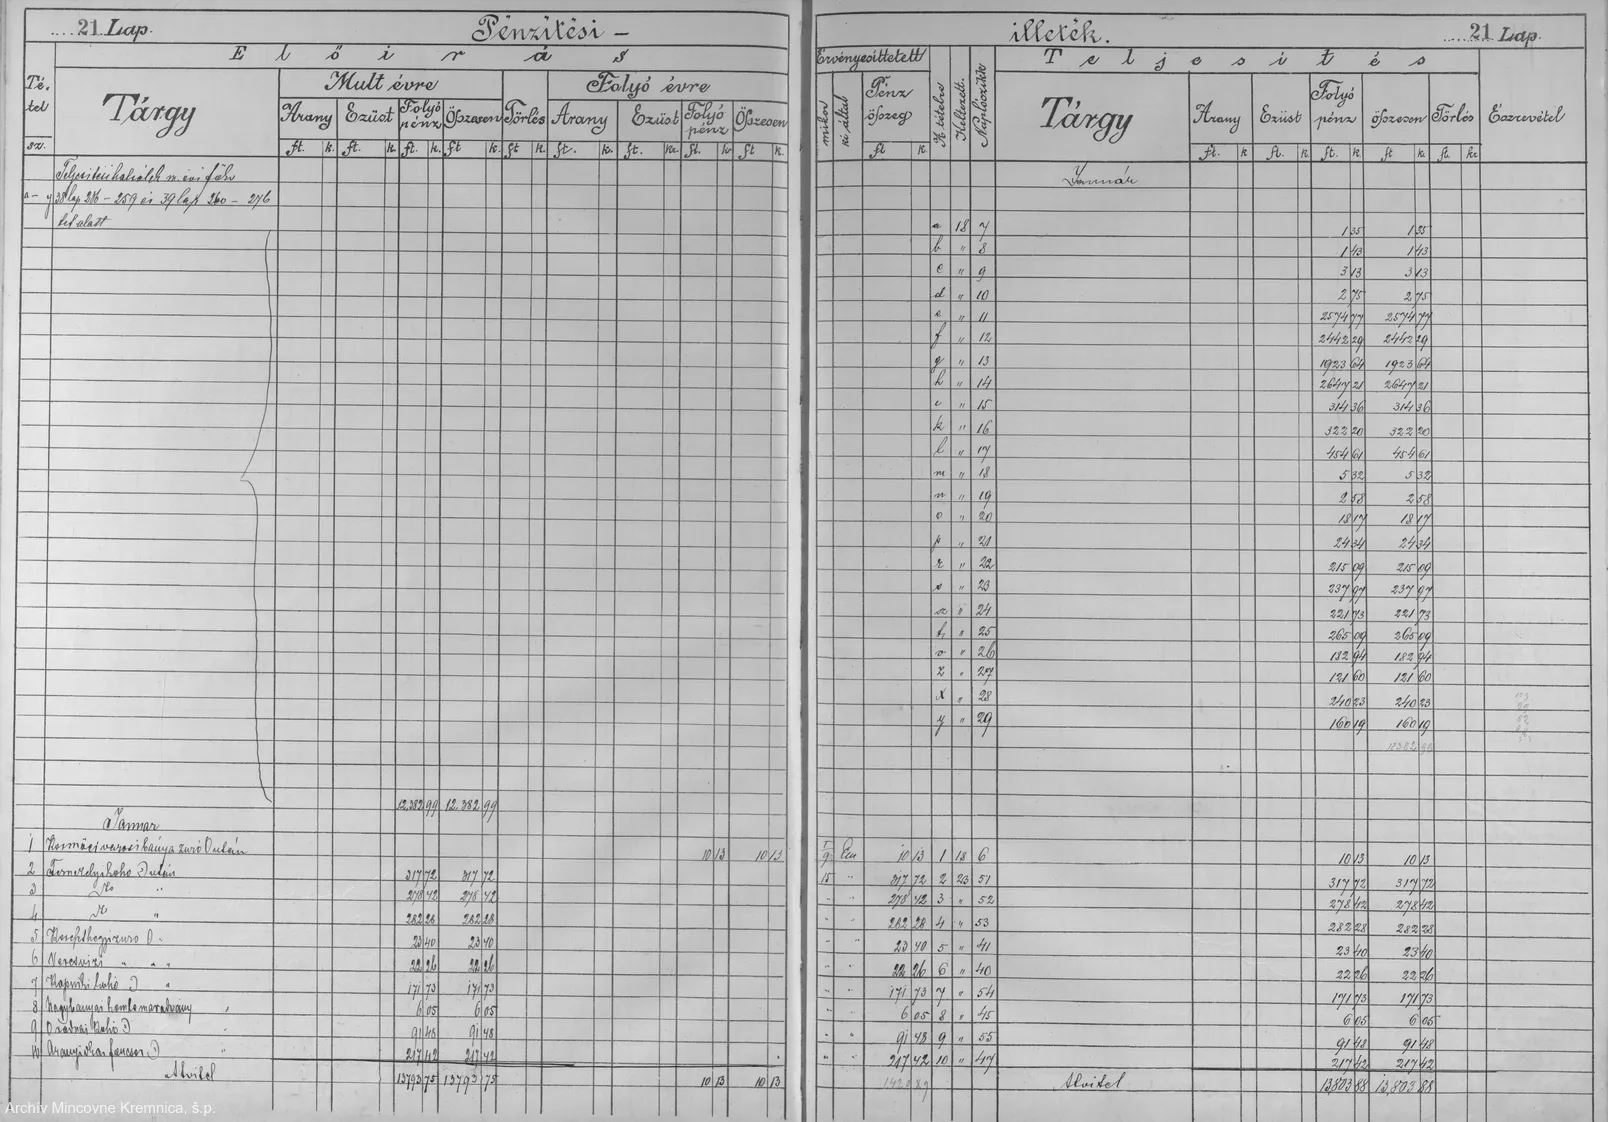 21 Lap.
Pénzitési –
illeték.
21 Lap.
Előirás
Érvényesittetett
Teljesités
Té-
tel
sz.
Tárgy
Mult évre
Folyó évre
Arany Ezüst Folyó pénz Összesen Törlés Arany Ezüst Folyó pénz Összesen
mikor
ki által
Pénz összeg
A tételre
Keltezett.
Naplószikk
Tárgy
Arany Ezüst Folyó pénz összesen Törlés Észrevétel
ft. k. ft. k. ft. k. ft k. ft k ft. k. ft. kr. ft. kr ft k.
ft k. ft. k ft. k ft. k ft k. ft. kr
a – y 38 lap 216 – 259 és 39 lap 260 – 276
tet alatt
Január
a 18 7 1 35 1 35
b " 8 1 43 1 43
c " 9 3 13 3 13
d " 10 2 75 2 75
e " 11 2574 77 2574 77
f " 12 2442 29 2442 29
g " 13 1923 64 1923 64
h " 14 2647 21 2647 21
i " 15 314 36 314 36
k " 16 322 20 322 20
l " 17 454 61 454 61
m " 18 5 32 5 32
n " 19 2 58 2 58
o " 20 18 17 18 17
p " 21 24 34 24 34
r " 22 215 09 215 09
s " 23 237 97 237 97
sz " 24 221 73 221 73
t " 25 265 09 265 09
v " 26 182 94 182 94
z " 27 121 60 121 60
x " 28 240 23 240 23
y " 29 160 19 160 19
12382 99
12.382 99 12.382 99
Januar
1 10 13 10 13 10 13 1 18 6 10 13 10 13
2 Fernezelyi koho D után 317 72 317 72 15 " 317 72 2 23 51 317 72 317 72
3 " 278 42 278 42 " " 278 42 3 " 52 278 42 278 42
4 " 282 28 282 28 " " 282 28 4 " 53 282 28 282 28
5 23 40 23 40 " " 23 40 5 " 41 23 40 23 40
6 Veresvizi " " " 22 26 22 26 " " 22 26 6 " 40 22 26 22 26
7 Kapniki koho D " 171 73 171 73 " " 171 73 7 " 54 171 73 171 73
8 Nagybanyai 6 05 6 05 " " 6 05 8 " 45 6 05 6 05
9 Oradnai Koho D " 91 48 91 48 " " 91 48 9 " 55 91 48 91 48
10 217 42 217 42 " " 217 42 10 " 47 217 42 217 42
Atvitel 13793 75 13793 75 10 13 10 13
Atvitel 13,803 88 13,803 88
Archív Mincovne Kremnica, š.p.